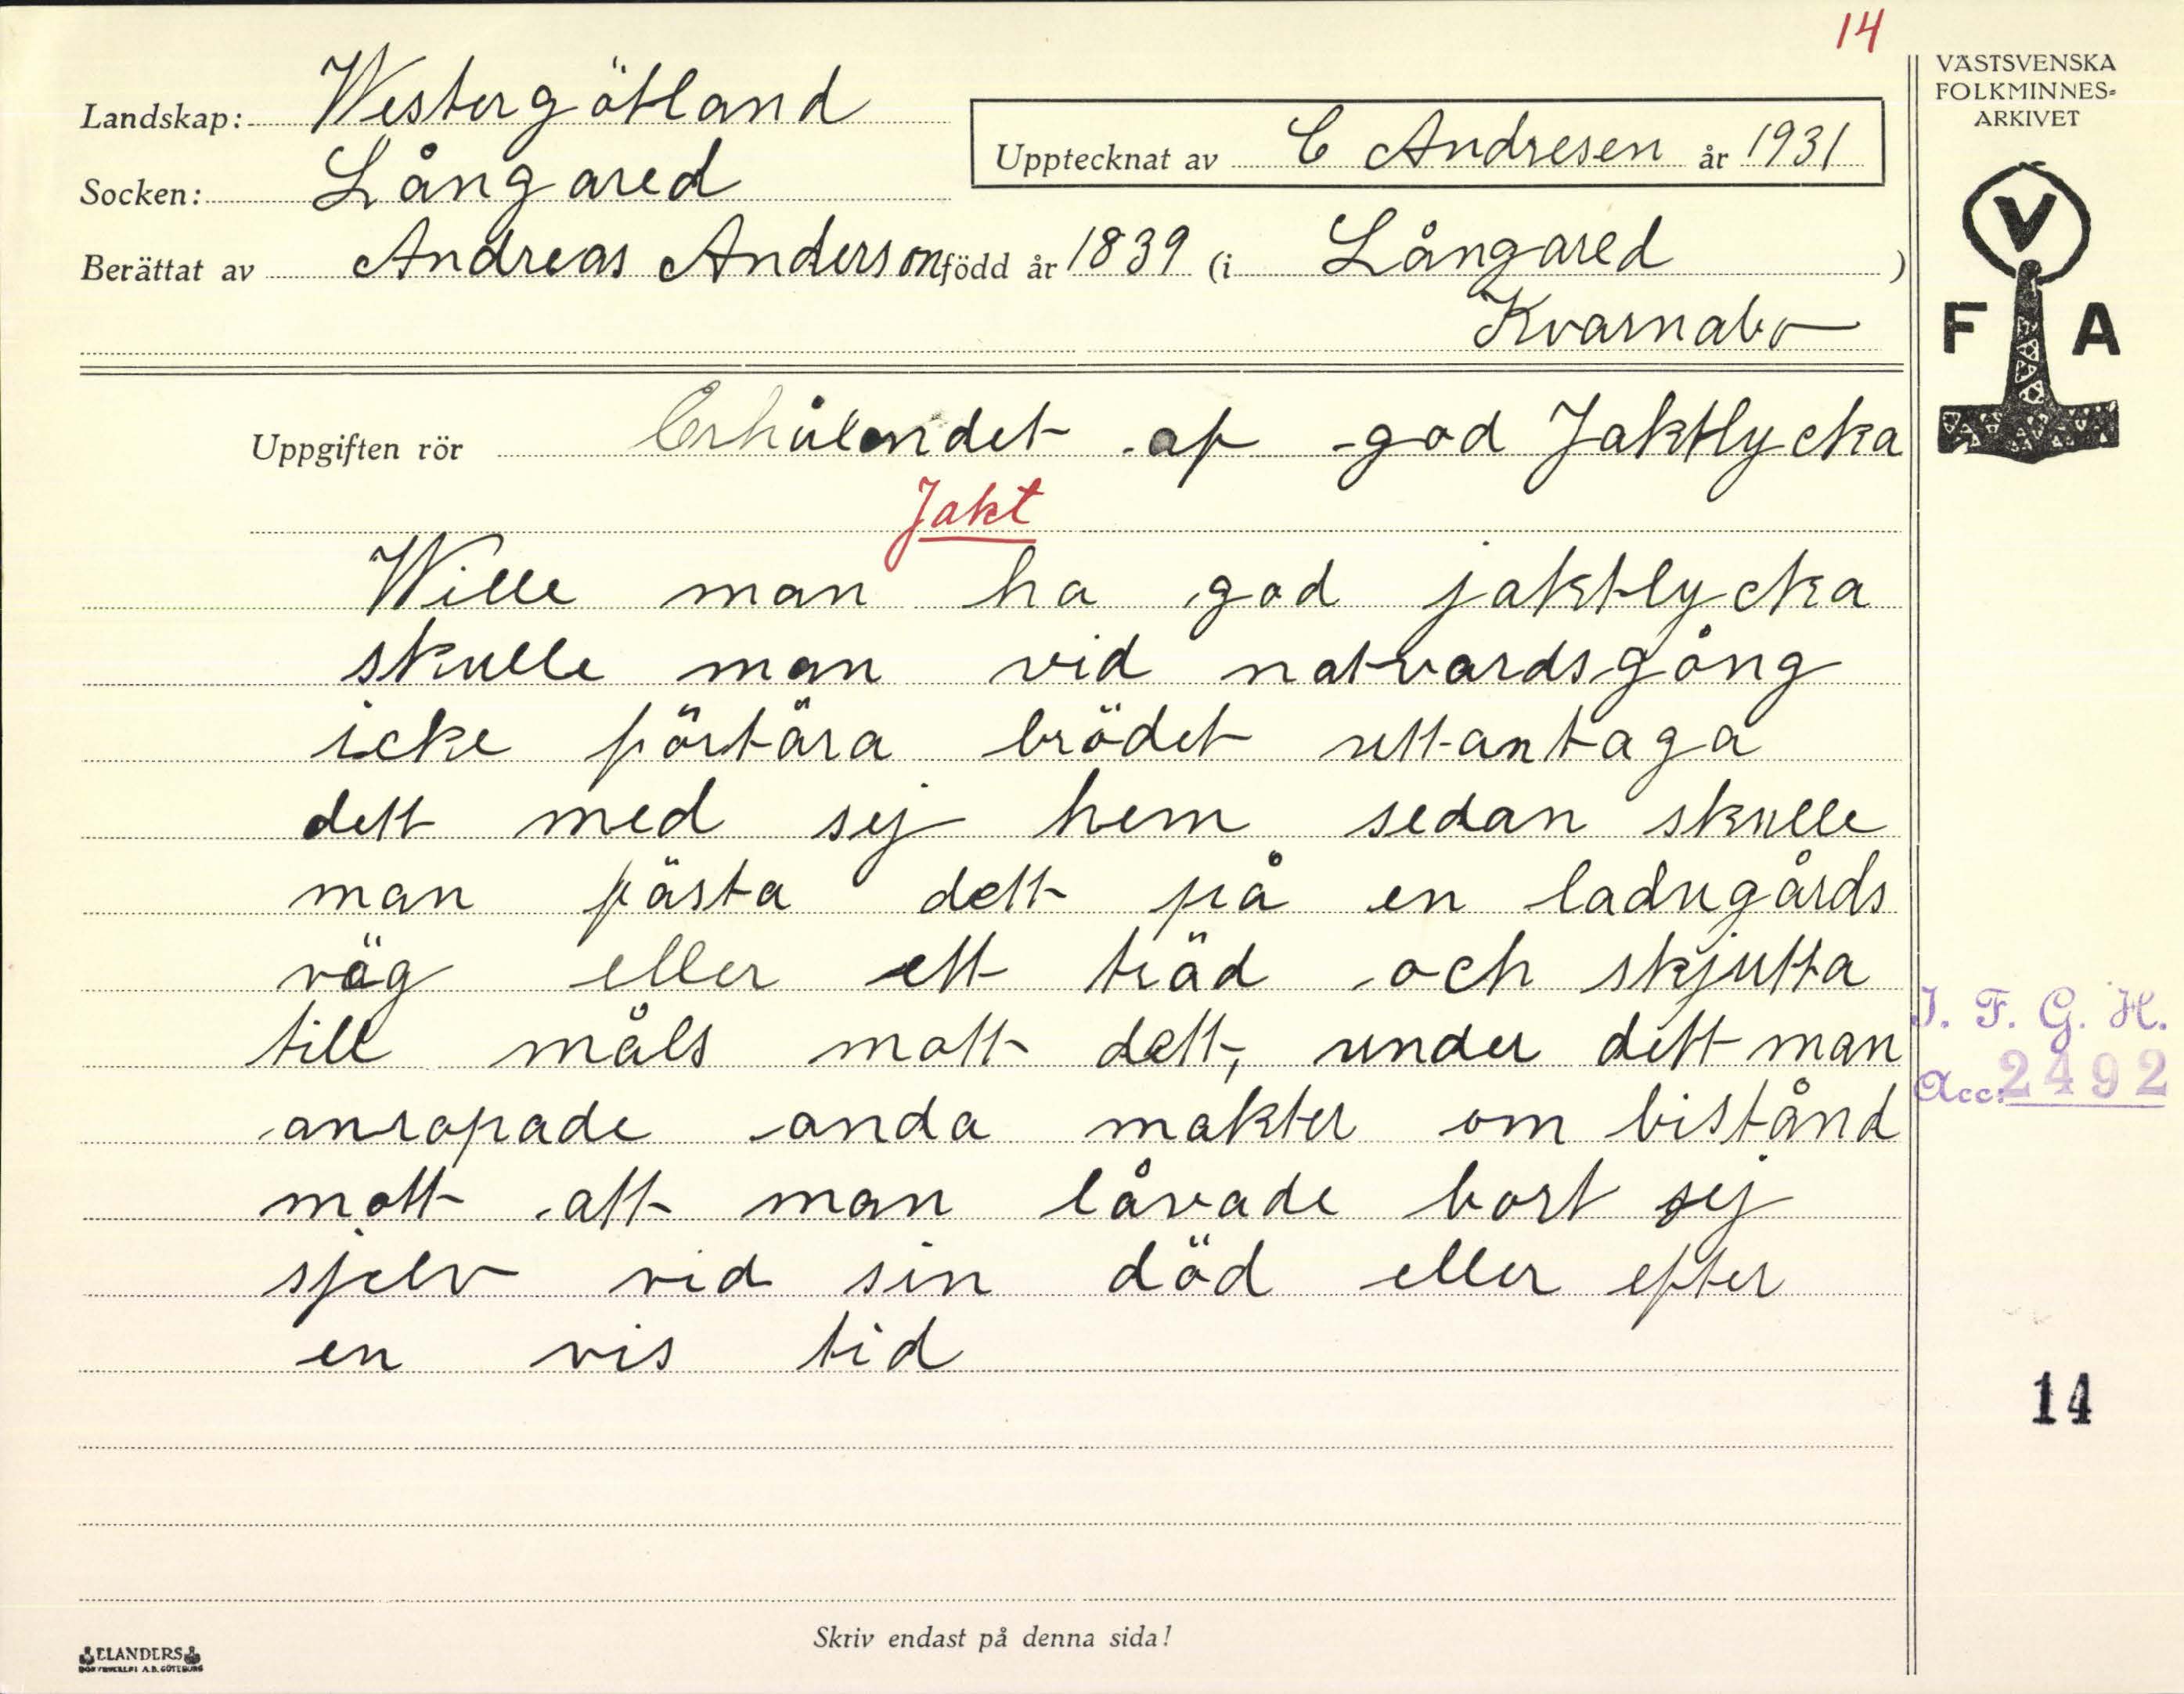 14
VÄSTSVENSKA
FOLKMINNES-
ARKIVET
Landskap: Westergötland
Upptecknat av C Andresen år 1931
Socken: Långared
Berättat av Andreas Anderson född år 1839 (i Långared )
Kvarnabo
V
F A
Uppgiften rör Erhålendet af god Jaktlycka
Jakt
Wille man ha god jaktlycka
skulle man vid natvardsgång
icke förtära brödet uttantaga
dett med sej hem sedan skulle
man fästa dett på en ladugårds
väg eller ett träd och skjutta
till måls mott dett, under dett man
anropade anda makter om bistånd
mott att man låvade bort sej
sjelv vid sin död eller efter
en vis tid
I. F. G. H.
Acc. 2492
14
Skriv endast på denna sida!
ELANDERS
BOKTRYCKERI A.B. GÖTEBORG